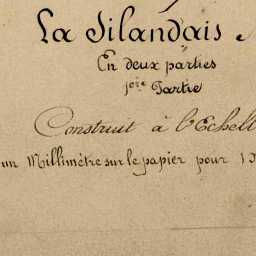 La Silandais
En deux parties
1ère Partie
Construit à l'Echell
un Millimètre sur le papier pour 1